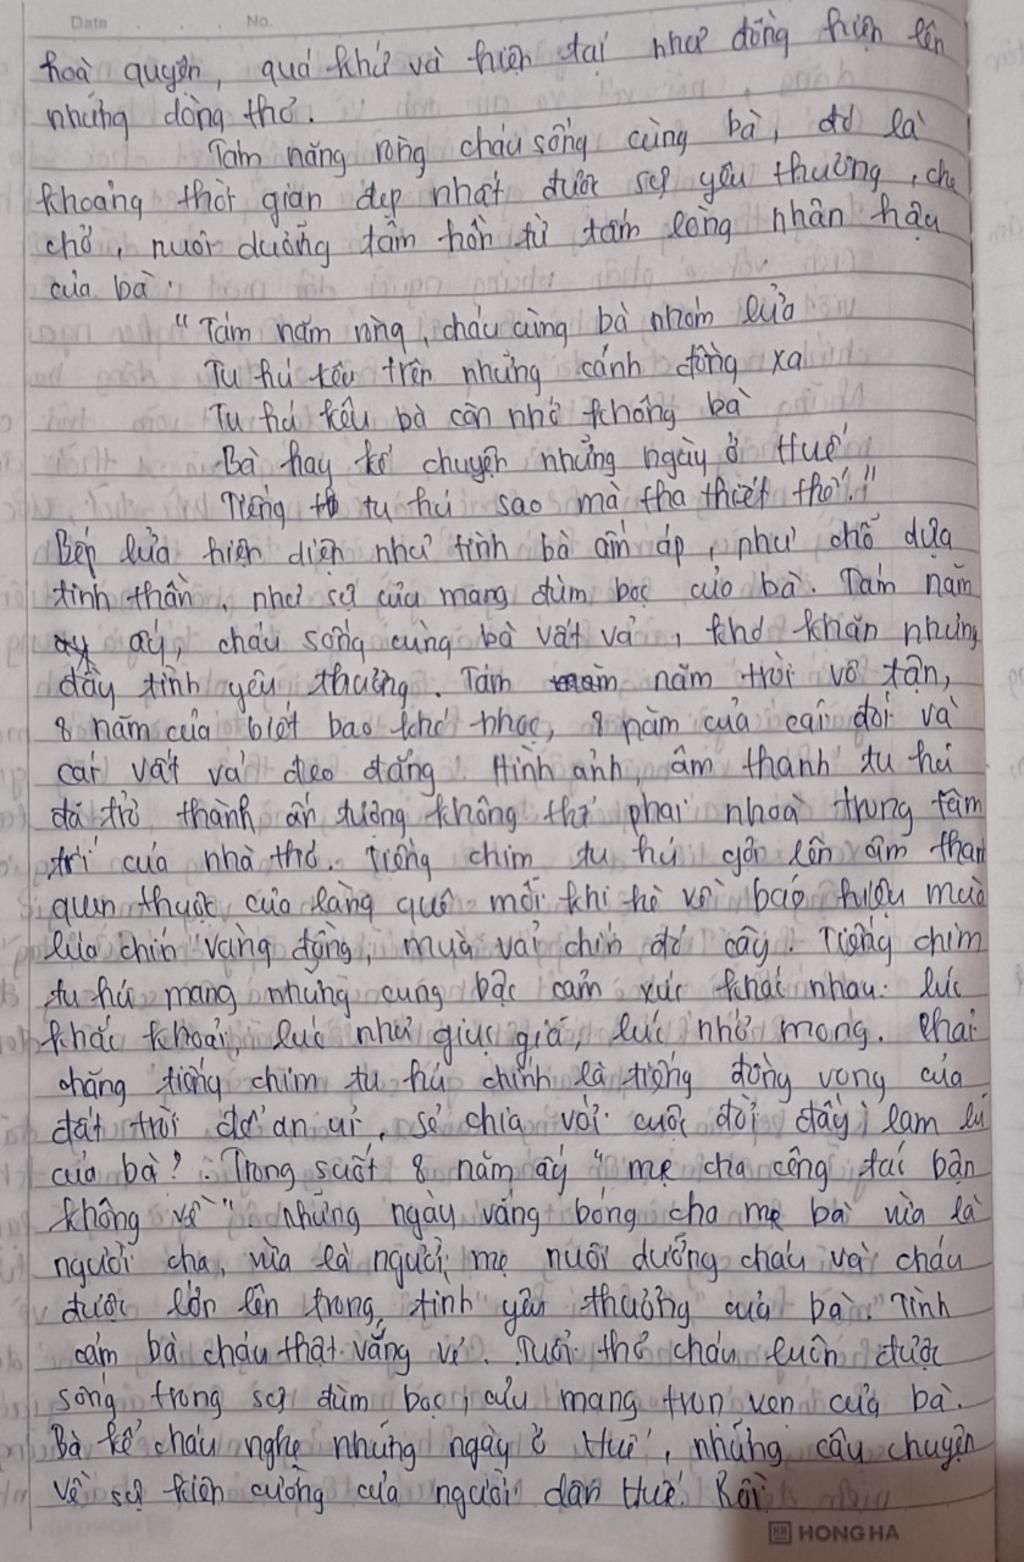 Date No.
hoà quyện, quá khứ và hiện tại như đồng hiện lên
những dòng thơ.
Tám năng ròng cháu sống cùng bà, đó là
khoảng thời gian đẹp nhất được sự yêu thương, che
chở, nuôi dưỡng tâm hồn từ tấm lòng nhân hậu
của bà.
"Tám năm ròng, cháu cùng bà nhóm lửa
Tu hú kêu trên những cánh đồng xa
Tu hú kêu bà còn nhớ không bà
Bà hay kể chuyện những ngày ở Huế
Tiếng tu hú sao mà tha thiết thế."
Bếp lửa hiện diện như tình bà ấm áp, như chỗ dựa
tinh thần, như sự cưu mang đùm bọc của bà. Tám năm
ấy, cháu sống cùng bà vất vả, khó khăn nhưng
đầy tình yêu thương. Tám năm trời vô tận,
8 năm của biết bao khó nhọc, 8 năm của cái đói và
cái vất vả đeo đẳng. Hình ảnh, âm thanh tu hú
đã trở thành ấn tượng không thể phai nhoà trong tâm
trí của nhà thơ. Tiếng chim tu hú gợi lên âm than
quen thuộc của làng quê mỗi khi hè về báo hiệu mùa
lúa chín vàng đồng, mùa vải chín đỏ cây. Tiếng chim
tu hú mang những cung bậc cảm xúc khác nhau: lúc
khắc khoải, lúc như giục giã, lúc nhớ mong. Phải
chăng tiếng chim tu hú chính là tiếng đồng vọng của
đất trời để an ủi, sẻ chia với cuộc đời đầy lam lũ
của bà? Trong suốt 8 năm ấy "mẹ cha công tác bận
không về". Những ngày vắng bóng cha mẹ bà vừa là
người cha, vừa là người mẹ nuôi dưỡng cháu và cháu
được lớn lên trong tình yêu thương của bà. Tình
cảm bà cháu thật vắng vẻ. Tuổi thơ cháu luôn được
sống trong sự đùm bọc, cưu mang trọn vẹn của bà.
Bà kể cháu nghe những ngày ở Huế, những câu chuyện
về sự kiên cường của người dân Huế. Rồi
HONG HA